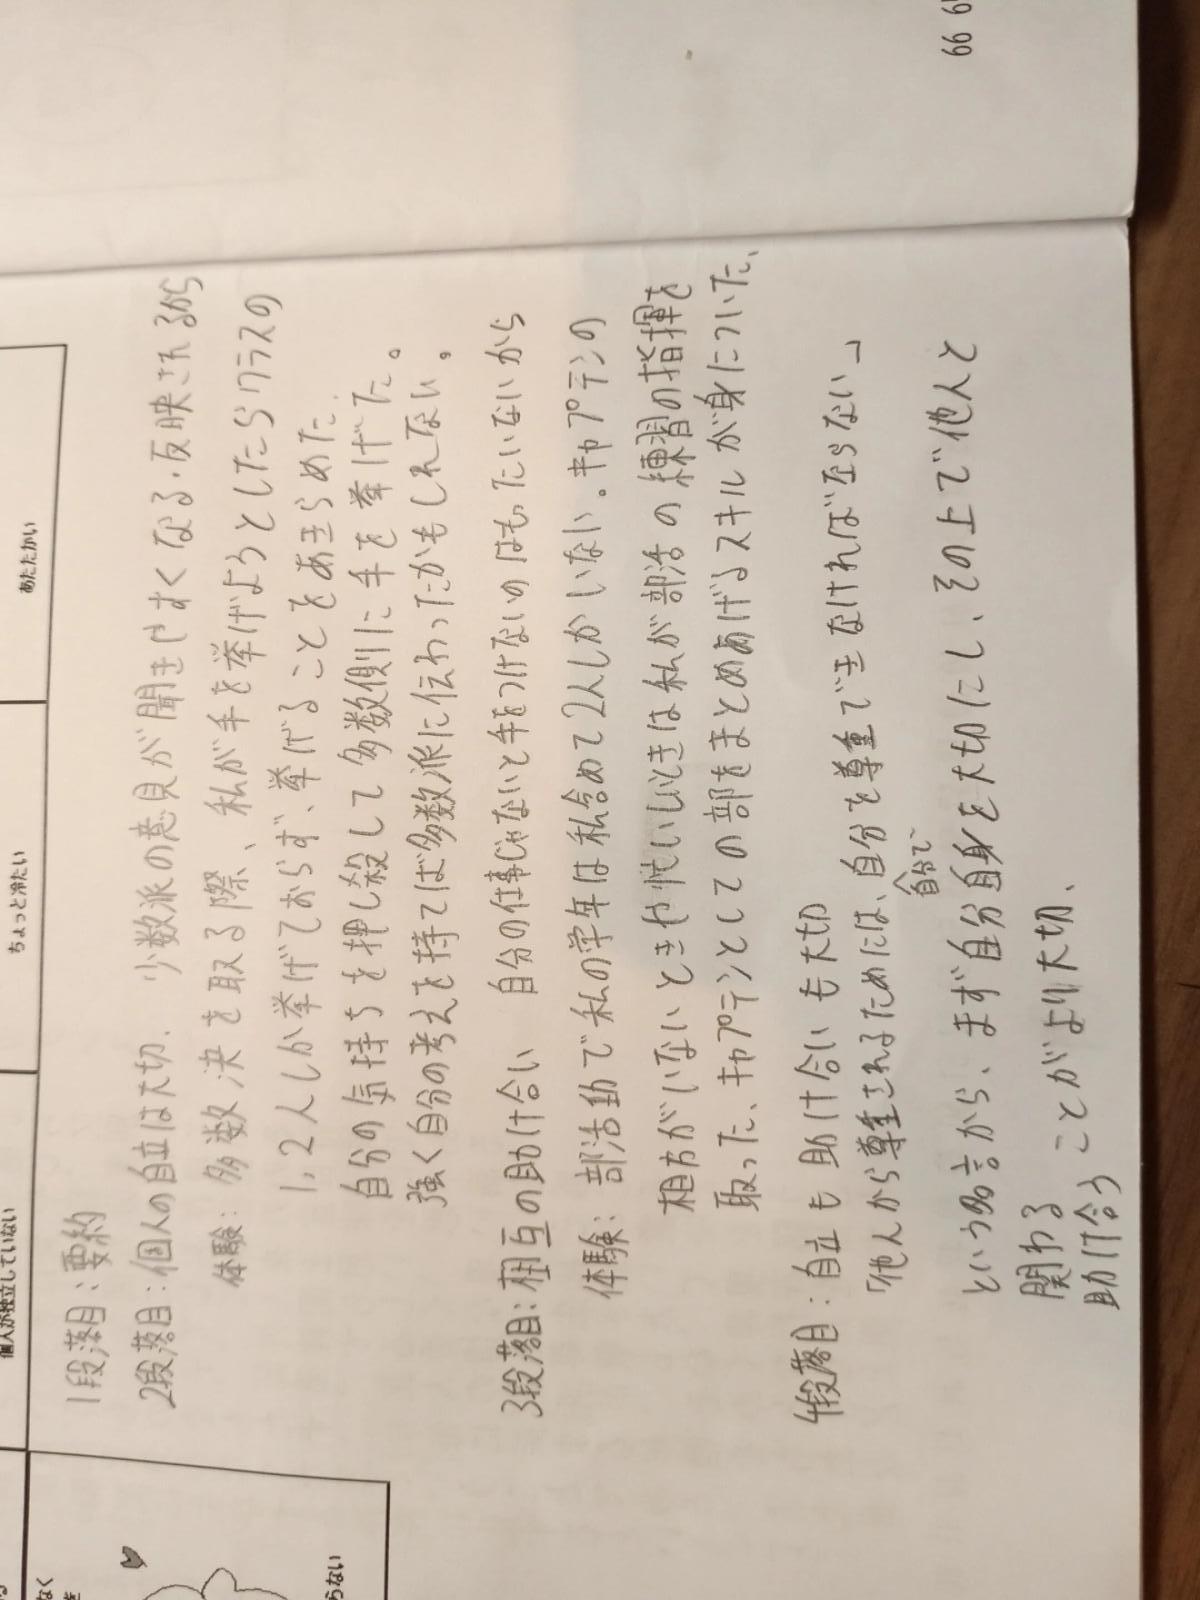 あたたかい
ちょっと冷たい
個人が独立していない
らない
なく
1段落目：要約
2段落目：個人の自立は大切. 少数派の意見が聞きやすくなる・反映されるから
体験：多数決を取る際、私が手を挙げようとしたらクラスの
1, 2人しか挙げておらず、挙げることをあきらめた.
自分の気持ちを押し殺して多数側に手を挙げた。
強く自分の考えを持てば多数派に伝わったかもしれない。
3段落目：相互の助け合い 自分の仕事じゃないと手をつけないのはもったいないから
体験：部活動で私の学年は私含めて2人しかいない。キャプテンの
相方がいないときや忙しいときは私が部活の練習の指揮を
取った、キャプテンとしての部をまとめあげるスキルが身についた、
4段落目：自立も助け合いも大切
「他人から尊重されるためには、自分を尊重できなければならない」
自分で
という名言から、まず自分自身を大切にし、その上で他人と
関わる
助け合うことがより大切、
66